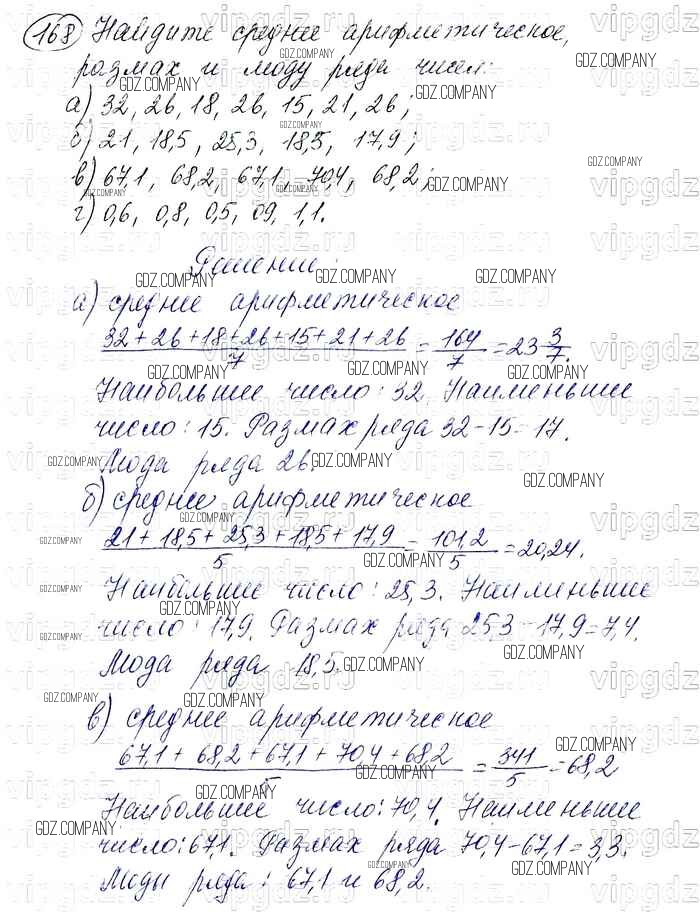 168 Найдите среднее арифметическое,
размах и моду ряда чисел:
а) 32, 26, 18, 26, 15, 21, 26;
б) 21, 18,5, 25,3, 18,5, 17,9;
в) 67,1, 68,2, 67,1, 70,4, 68,2;
г) 0,6, 0,8, 0,5, 0,9, 1,1.
Решение:
а) среднее арифметическое
32+26+18+26+15+21+26/7 = 164/7 = 23 3/7.
Наибольшее число: 32. Наименьшее
число: 15. Размах ряда 32-15=17.
Мода ряда 26.
б) среднее арифметическое
21+18,5+25,3+18,5+17,9/5 = 101,2/5 = 20,24.
Наибольшее число: 25,3. Наименьшее
число: 17,9. Размах ряда 25,3-17,9=7,4.
Мода ряда 18,5.
в) среднее арифметическое
67,1+68,2+67,1+70,4+68,2/5 = 341/5 = 68,2
Наибольшее число: 70,4. Наименьшее
число: 67,1. Размах ряда 70,4-67,1=3,3.
Моды ряда: 67,1 и 68,2.
GDZ.COMPANY
vipgdz.ru